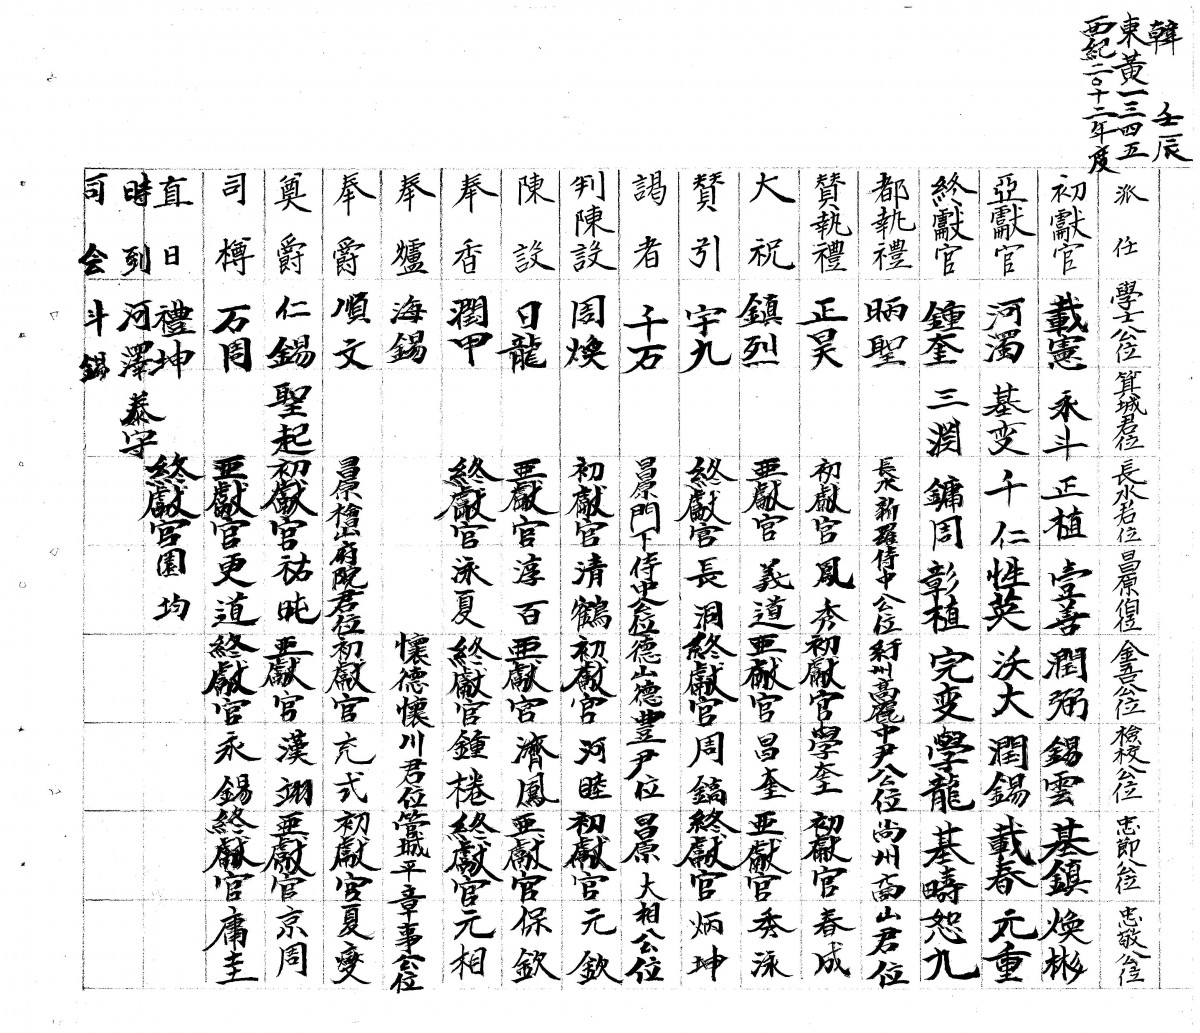 韓 壬辰
東黃一三四五
西紀二〇十二年度
派任 學士公位 箕城君位 長水君位 昌原伯位 金吾公位 檢校公位 忠節公位 忠敬公位
初獻官 載憲 永斗 正植 壹善 潤弼 錫雲 基鎮 煥彬
亞獻官 河濁 基变 千仁 性英 沃大 潤錫 載春 元重
終獻官 鍾奎 三潤 鏞周 彰植 完变 學龍 基疇 恕九
都執禮 昞聖 長水新羅侍中公位 高麗中尹公位 尚州 山君位
贊執禮 正昊 初獻官 鳳秀 初獻官 學奎 初獻官 春成
大祝 鎮烈 亜獻官 義道 亜献官 昌奎 亜獻官 秀泳
贊引 宇九 終獻官 長洞 終獻官 周鎬 終獻官 炳坤
謁者 千石 昌原門下侍中公位 德山德豊尹位 昌原大相公位
判陳設 周煥 初獻官 清鶴 初獻官 河睦 初獻官 元欽
陳設 日龍 亜獻官 淳百 亜獻官 濟鳳 亜獻官 保欽
奉香 潤甲 終獻官 泳夏 終獻官 鍾棬 終獻官 元相
奉爐 海錫 懷德懷川君位 管城平章事公位
奉爵 順文 昌原檜山府院君位 初獻官 充式 初獻官 夏變
奠爵 仁錫 聖起 初獻官 祐旽 亜獻官 漢翊 亜獻官 京周
司樽 万周 亜獻官 更道 終獻官 永錫 終獻官 庸圭
直日 禮坤 終獻官 園均
時到 河澤 泰宇
司会 斗錫